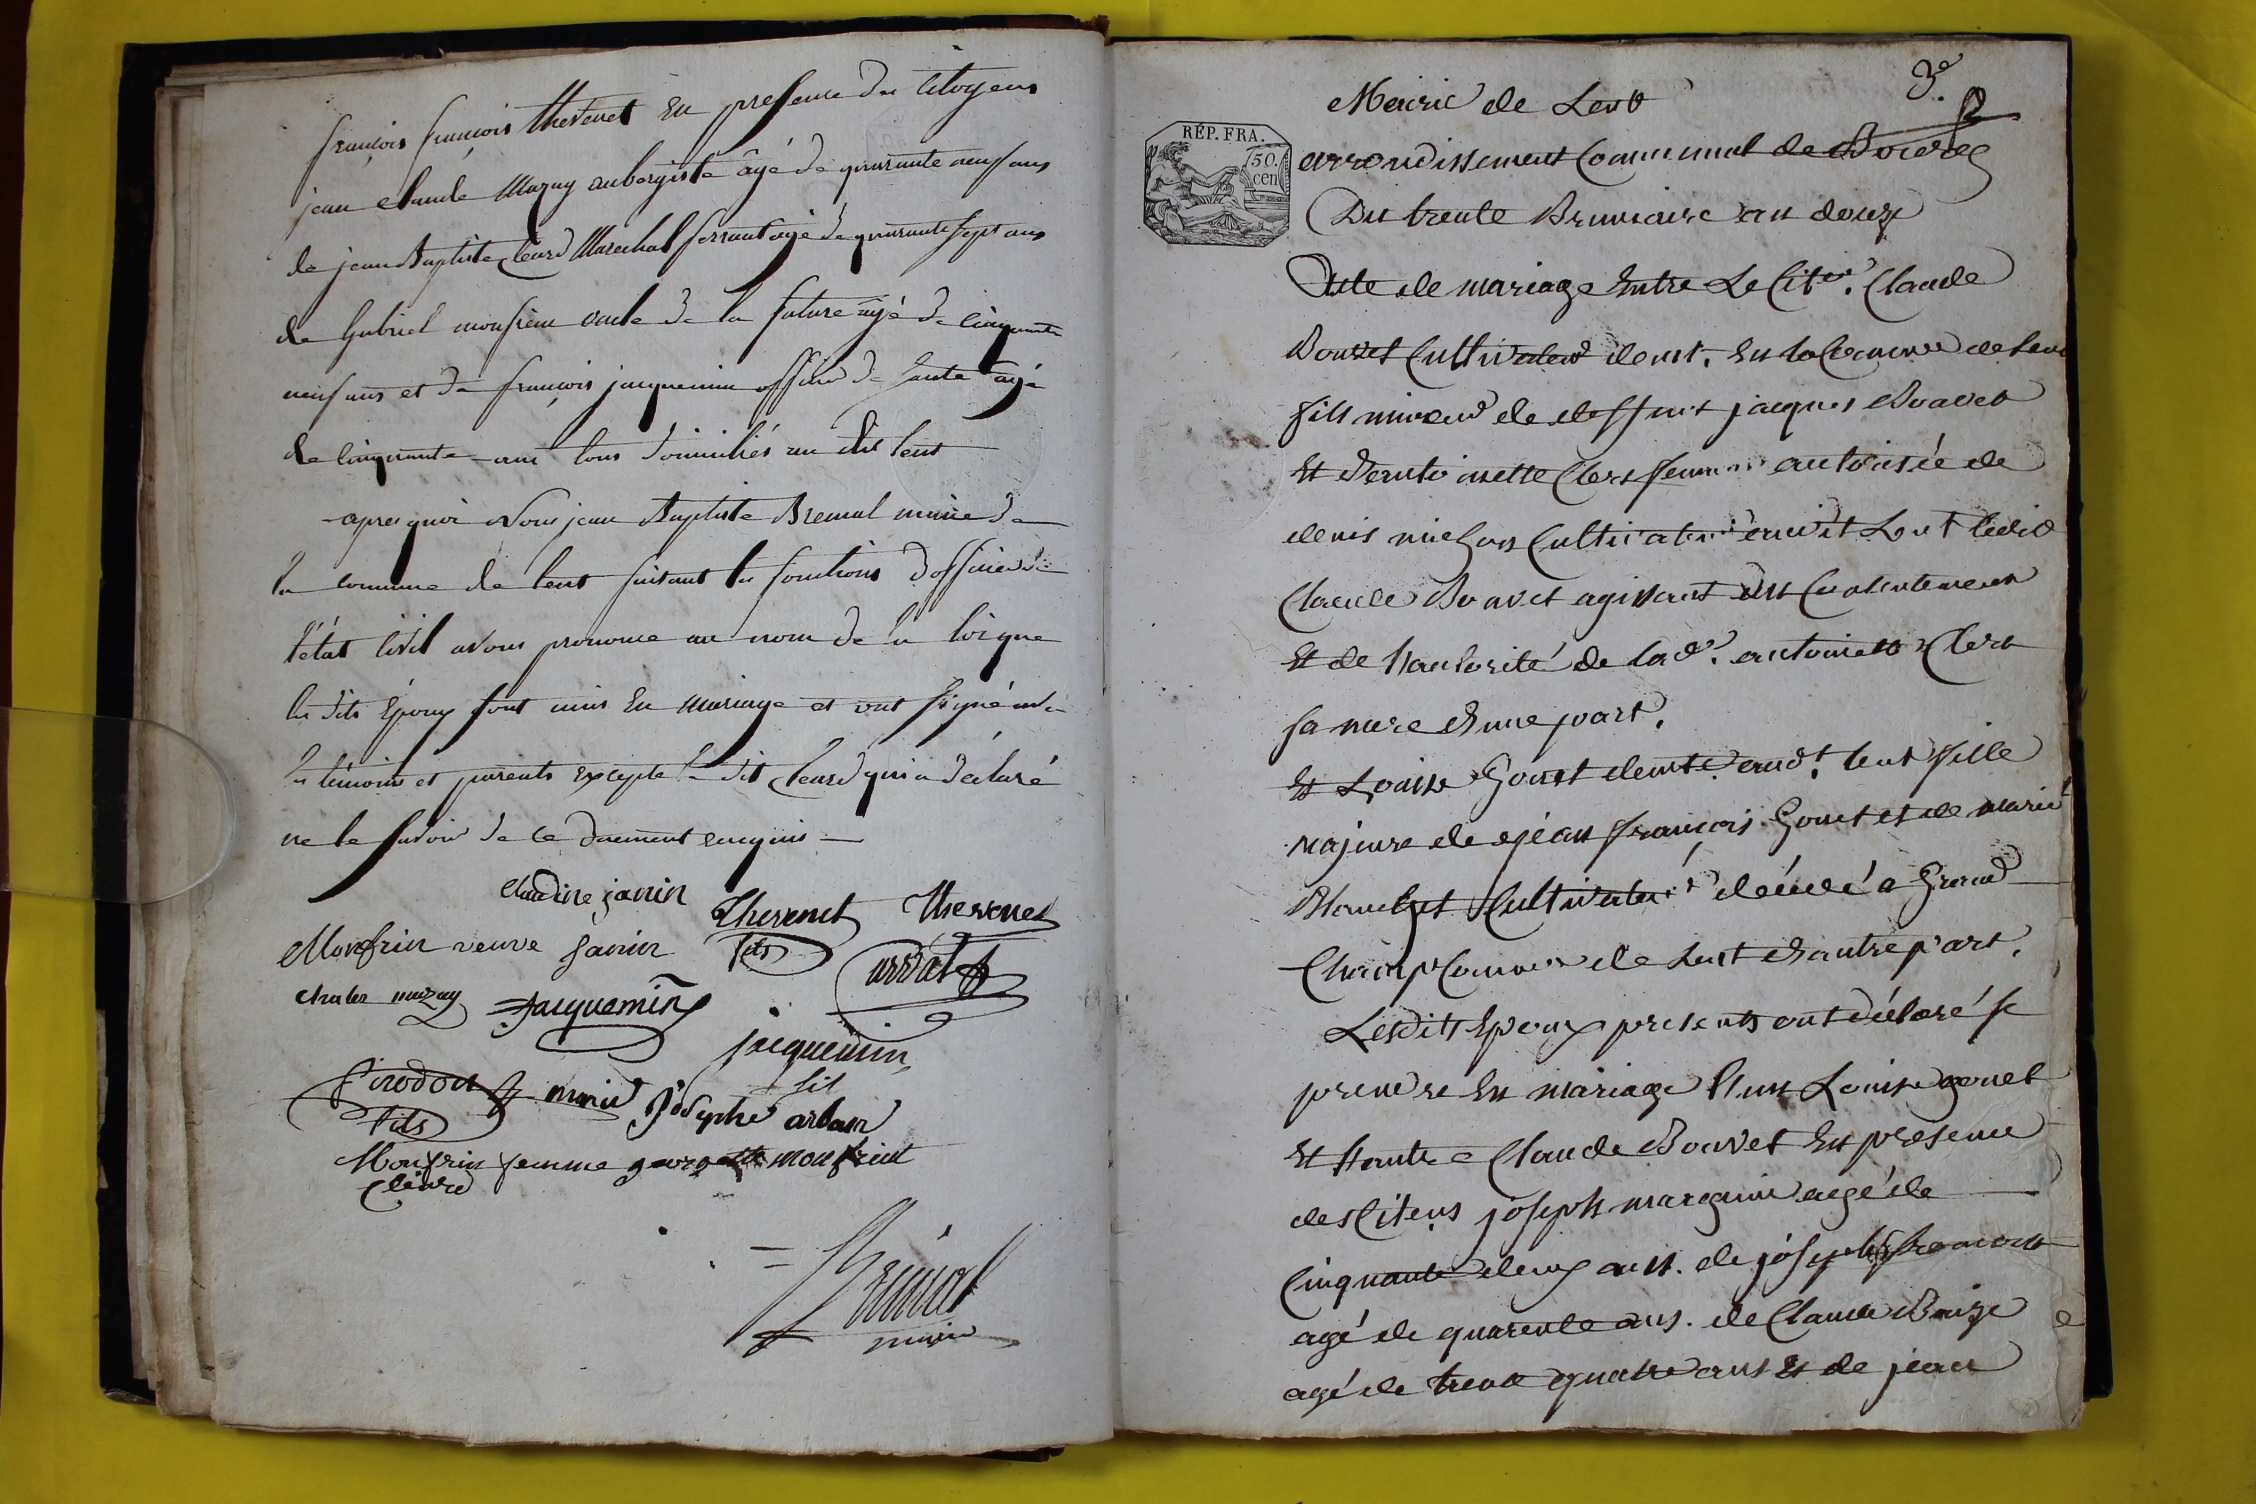 françois françois thevenet En presence des citoyens
jean claude Mazuy aubergiste âgé de quarante neuf ans
de jean Baptiste Cleard Marechal ferrant agé de quarante sept ans
de Gabriel monfrein oncle de la future agé de cinquante
neuf ans et de françois jacquemin officier de santé agé
de cinquante ans tous domiciliés au dit lent
apres quoi Nous jean Baptiste Bremal maire de
la commune de lent faisant les fonctions d'officier de
l'état Civil avons prononcé au nom de la loi que
les dits Epoux sont unis En mariage et ont signé avec
les témoins et parents Excepté le dit Cleard qui a déclaré
ne le savoir de ce duement enquis
Claudine janin
Thevenet fils
Thevenet
Monfrin veuve Janin
charles mazuy
Jacquemin
jacquemin fils
Girodon fils
marie Josephe arban
Monfrin femme georgette monfrint
Cleard
Bremal
maire
3e
Mairie de Lent
RÉP. FRA.
50.
cen
arrondissement Communal de Bourg
Du trente Brumaire an douze
Acte de mariage Entre Le Citen. Claude
Bouvet Cultivateur demt. En la Commune de Lent
fils mineur de deffunt jacques Bouvet
Et d'entoinette Clert femme autorisée de
denis michon Cultivateur audit Lent ledit
Claude Bouvet agissant du Consentement
Et de l'autorité de lade. antoinette Clert
sa mere d'une part.
Et Louise Gonet demte. audt. lent fille
majeure de jean françois Gonet et de marie
Blanchet Cultivateur décédé a Grand
Champ Commune de Lent d'autre part.
Lesdits Epoux presents ont déclaré se
prendre En mariage l'un Louise gonet
Et l'autre Claude Bouvet En presence
des Citens joseph marguin agé de
Cinquante deux ans. de joseph
agé de quarente ans. de Claude Buize
agé de trente quatre ans Et de jean